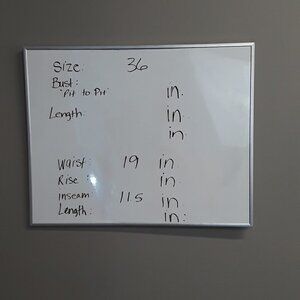 Size: 36
Bust:
"Pit to Pit" in.
Length: in.
in.
Waist: 19 in.
Rise: in.
Inseam 11.5 in
Length: in.